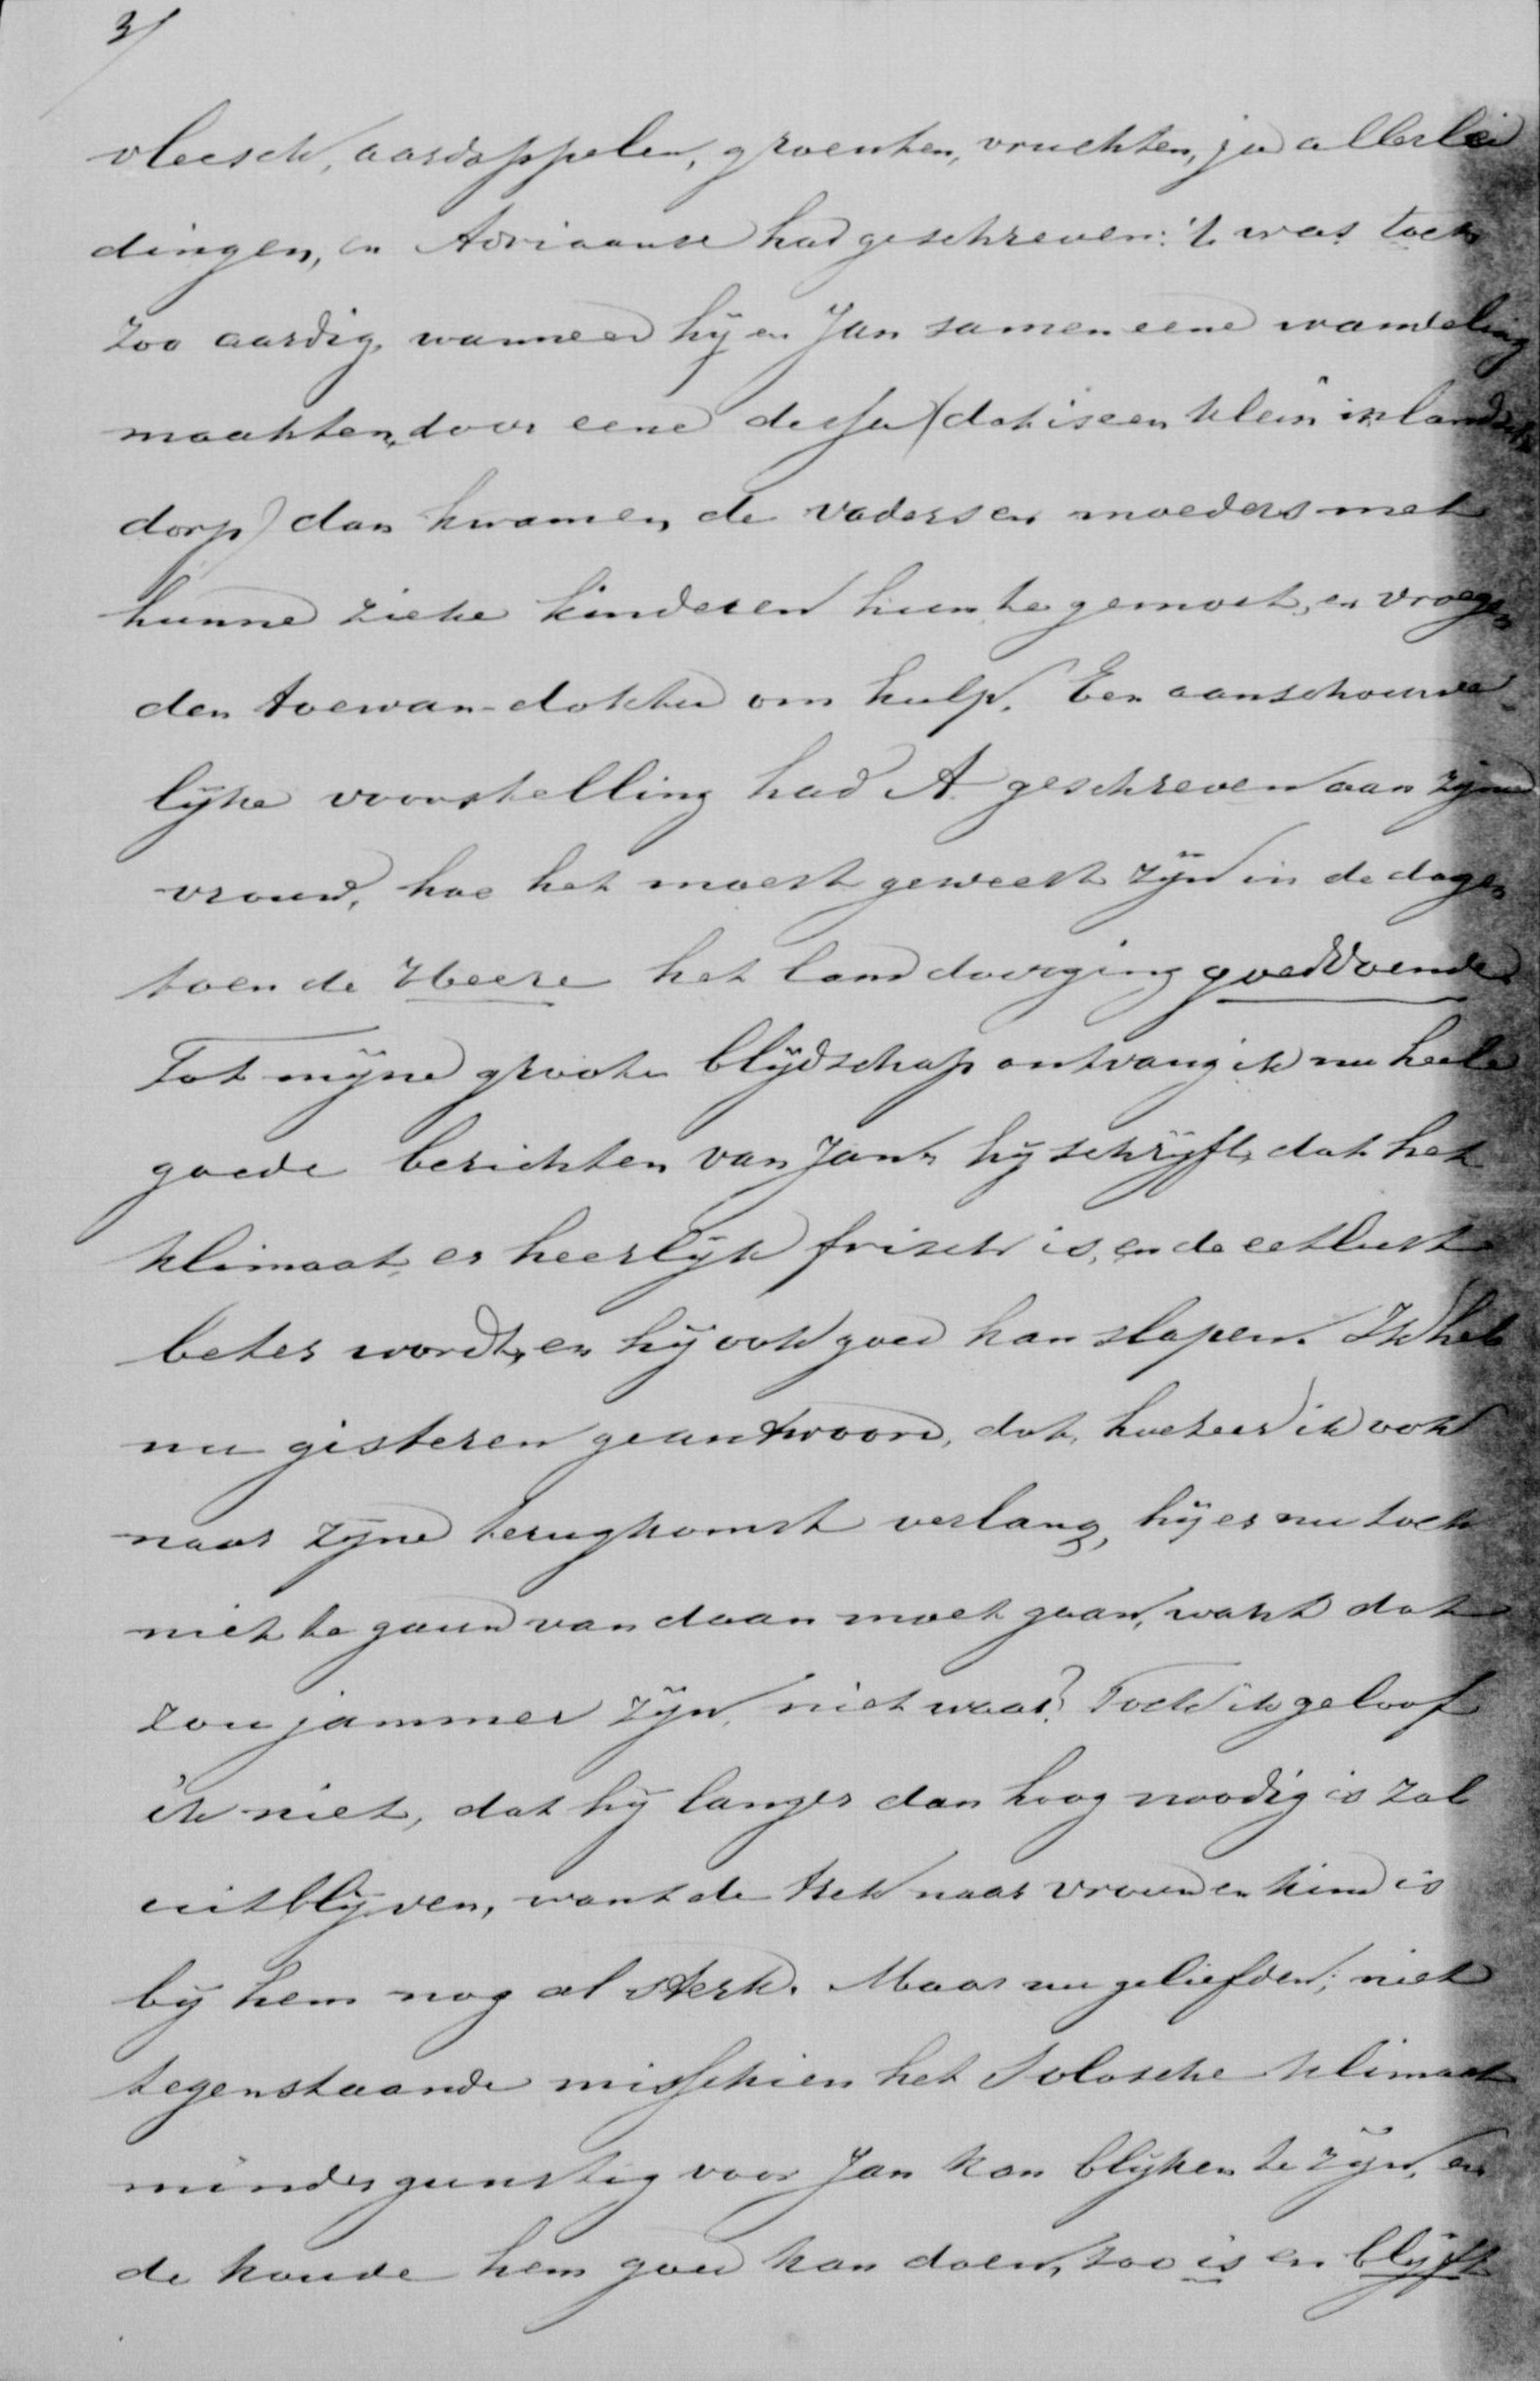 3/
vleesch, aardappelen, groenten, vruchten, ja allerlei
dingen, en Adriaanse had geschreven: 't was toch
zoo aardig, wanneer hij en Jan samen eene wandeling
maakten, door eene dessa (dat is een klein inlandsch
dorp) dan kwamen de vaders en moeders met
hunne zieke kinderen hun te gemoet, en vroegen
den toewan-dokter om hulp. Een aanschouwe-
lijke voorstelling had A. geschreven aan zijne
vrouw, hoe het moest geweest zijn in de dagen
toen de Heere het land doorging goeddoende
Tot mijne groote blijdschap ontvang ik nu heele
goede berichten van Jan, hij schrijft, dat het
klimaat er heerlijk frisch is, en de eetlust
beter wordt, en hij ook goed kan slapen. Ik heb
nu gisteren geantwoord, dat, hoezeer ik ook
naar zijne terugkomst verlang, hij er nu toch
niet te gauw vandaan moet gaan, want dat
zou jammer zijn, niet waar? Toch ik geloof
ik niet, dat hij langer dan hoog noodig is zal
uitblijven, want de trek naar vrouw en kind is
bij hem nog al sterk. Maar nu geliefden; niet
tegenstaande misschien het Solosche klimaat
minder gunstig voor Jan kan blijken te zijn, en
de koude hem goed kan doen, zoo is en blijft